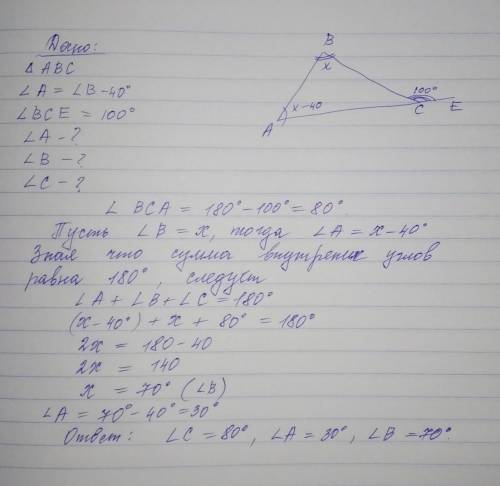 Дано:
△ ABC
∠A = ∠B - 40°
∠BCE = 100°
∠A - ?
∠B - ?
∠C - ?
B
x
x-40
A
100°
C
E
∠ BCA = 180° - 100° = 80°.
Пусть ∠B = x, тогда ∠A = x - 40°
Зная что сумма внутрених углов
равна 180°, следует
∠A + ∠B + ∠C = 180°
(x - 40°) + x + 80° = 180°
2x = 180 - 40
2x = 140
x = 70° (∠B)
∠A = 70° - 40° = 30°
Ответ: ∠C = 80°, ∠A = 30°, ∠B = 70°.